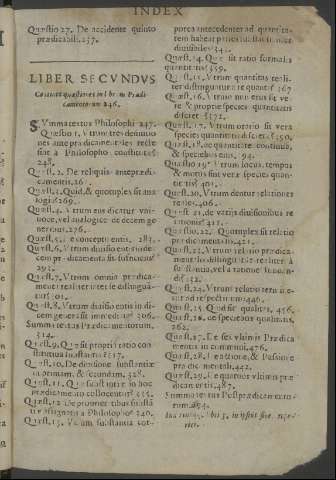 INDEX
Quæstio 27. De accidente quinto
prædicabili. 237.
LIBER SECVNDVS
Continet quæstiones in libru Prædi
camentorum 246.
SVmma textus Philosophi 247.
Quæstio 1. Vtrum tres definitio
nes antepredicamentales recte
sint à Philosopho constitutæ
248.
Quæst. 2. De reliquis antepredi
camentis. 261.
Quæst. 3. Quid, & quotuplex sit ana
logia? 269.
Quæst. 4. Vtrum ens dicatur vni
uoce, vel analogice de decem ge
neribus. 276.
Quæst. 5. De conceptu entis. 283.
Quæst. 6. Vtrum diuisio entis in de
cem prædicamenta sit sufficiens
292.
Quæst. 7. Vtrum omnia prædica
menta realiter inter se distingua
tur? 301.
Quæst. 8. Vtrum diuisio entis in de
cem genera sit immediata? 306.
Summa textus Prædicamentorum.
314.
Quæst. 9. Quæ sit propria ratio con
stitutiua substantiæ? 317.
Quæst. 10. De diuisione substantiæ
in primam, & secundam. 328.
Quæst. 11. Quæ substantiæ in hoc
prædicamento collocentur? 335.
Quæst. 12. De proprietatibus substã
tiæ assignatis à Philosopho 340.
Quæst. 13. Vtrum substantia cor-
porea antecedenter ad quantita-
tem habeat partes substantiales in
diuisibiles? 342.
Quæst. 14. Quæ sit ratio formalis
quantitatis? 359.
Quæst. 15. Vtrum quantitas reali-
ter distinguatur à re quanta? 367
Quæst. 16. Vtrum numerus sit ve
re & proprie species quantitatis
discretæ? 372.
Quæst. 17. Vtrum oratio sit vera
species quantitatis discretæ? 390.
Quæst. 18. De quantitate continua,
& speciebus eius. 94.
Quæstio 19. Vtrum locus, tempus
& motus sint veræ species quan-
titatis? 401.
Quæst. 20. Vtrum dentur relationes
reales. 406.
Quæst. 21. De varijs diuisionibus re
lationis? 411.
Quæstio. 22. Quotuplex sit relatio
prædicamentalis. 421.
Quæst. 23. Vtrum relatio prædica-
mentalis distinguatur realiter à
substantia, vel à ratione fundan-
di? 432.
Quæst. 24. Vtrum relatio termine-
tur ad respectiuum? 446.
Quæst. 25. Quid sit qualitas. 456.
Quæst. 26. De speciebus qualitatis.
462.
Quæst. 27. De sex vltimis Prædica
mentis in communi. 476.
Quæst. 28. De actione, & Passione
prædicamentali. 442.
Quæst. 29. De quatuor vltimis præ-
dicamentis. 487.
Summa textus Postprædicamento-
rum. 495.